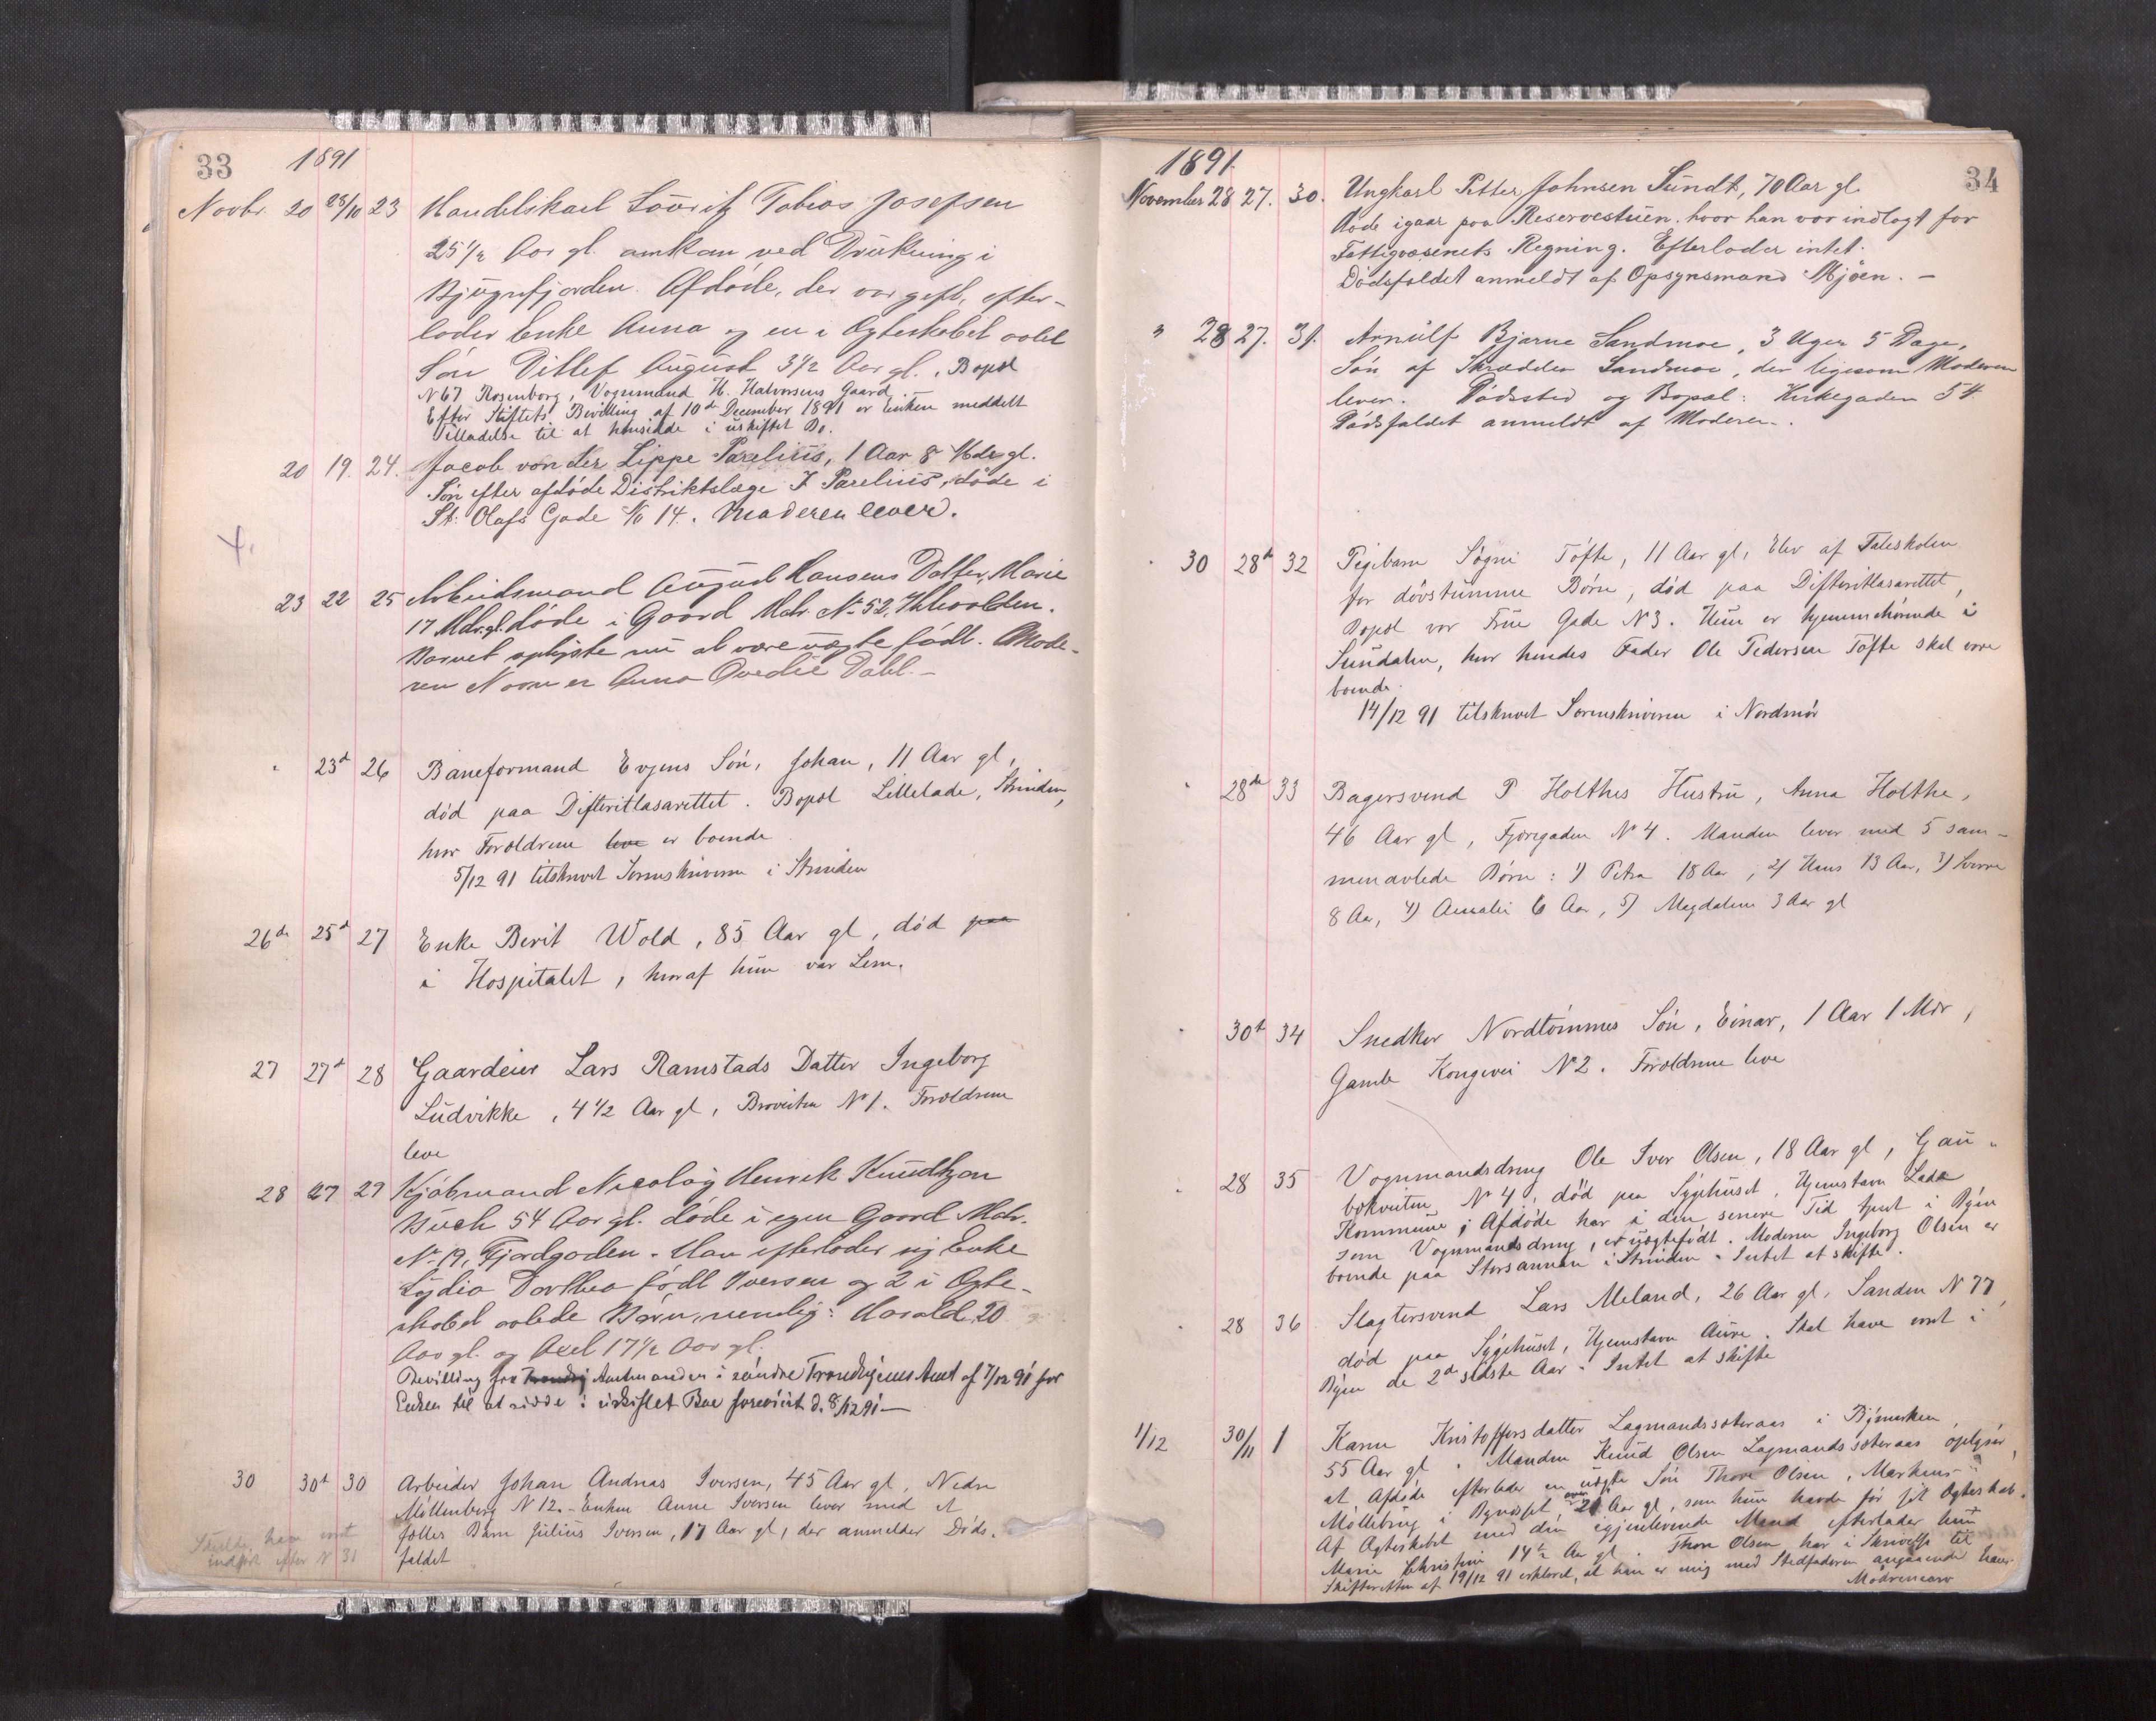 33 1891
Novbr. 20 28/10 23 Handelskarl Louritz Tobias Josefsen
25 1/2 Aar gl. omkom ved Drukning i
Bjugnfjorden. Afdöde, der var gift, efter-
lader Enke Anna og en i Ægteskabet avlet
Sön Ditlef August 3 1/2 Aar gl., Bopæl
N 67 Rosenborg, Vognmand H. Halvorsens Gaard.
Efter Stiftets Bevilling af 10de December 1891 er Enken meddelt
Tilladelse til at hensidde i uskiftet Bo.
20 19. 24. Jacob von der Lippe Parelius, 1 Aar 8 Mdr gl.
Sön efter afdöde Distriktslæge J. Parelius, döde i
St. Olafs Gade No 14. Moderen lever.
23 22 25 Arbeidsmand August Hansens Datter, Marie
17 Mdr. gl. döde i Gaard Matr. No 52, Ihlevolden.
Barnet oplyste nu at være uægte födt. Mode-
rens Navn er Anna Dahl. -
" 23d 26 Baneformand Evjens Sön, Johan, 11 Aar gl,
död paa Difteritlasarettet. Bopæl Lillelade, Strinden,
hvor Forældrene leve er boende
5/12 91 tilskrevet Sorenskriveren i Strinden
26de 25d 27 Enke Berit Wold, 85 Aar gl, död paa
i Hospitalet, hvoraf hun var Lem.
27 27d 28 Gaardeier Lars Ramstads Datter Ingeborg
Ludvikke, 4 1/2 Aar gl, Broveiten No 1. Forældrene
leve
28 27 29 Kjöbmand Nicolay Henrik Knudtzon
Buch 54 Aar gl. döde i egen Gaard Matr.
No 19, Fjordgaden. Han efterlader sig Enke
Lydia Dorthea födt Iversen og 2 i Ægte-
skabet avlede Børn, nemlig: Harald 20
Aar gl. og Axel 17 1/2 Aar gl.
Bevilling fra Trondhj Amtmanden i söndre Trondhjems Amt af 7/12 91 for
Enken til at sidde i uskiftet Boe foreviist d. 8/12 91 -
30 30d 30 Arbeider Johan Andreas Iversen, 45 Aar gl, Nedre
Möllenberg N 12. - Enken Anne Iversen lever med et
fælles Barn Julius Iversen, 17 Aar gl, der anmelder Döds-
faldet
Skulde have vært
indfört efter N 31
1891. 34
November 28 27. 30. Ungkarl Petter Johnsen Sundt, 70 Aar gl.
döde igaar paa Reservestuen, hvor han var indlagt for
Fattigvæsenets Regning. Efterlader intet.
Dödsfaldet anmeldt af Opsynsmand Mjöen. -
" 28 27. 31. Arnulf Bjarne Sandmoe, 3 Uger 5 Dage,
Sön af Skrædder Sandmoe, der ligesom Moderen
lever. Dödssted og Bopæl: Kirkegaden 54
Dödsfaldet anmeldt af Moderen.
" 30 28d 32 Pigebarn Sögni Töfte, 11 Aar gl, Elev af Taleskolen
for dövstumme Børn, död paa Difteritlasarettet,
Bopæl vor Frue Gade N 3. Hun er hjemmehörende i
Sundalen, hvor hendes Fader Ole Pedersen Töfte skal være
boende.
14/12 91 tilskrevet Sorenskriveren i Nordmör
" 28de 33 Bagersvend P Holthes Hustru, Anna Holthe,
46 Aar gl, Fjæregaden No 4. Manden lever med 5 sam-
menavlede Børn: 1) Petra 18 Aar, 2) Hans 13 Aar, 3) Sverre
8 Aar, 4) Amalie 6 Aar, 5) Magdalene 3 Aar gl
" 30d 34 Snedker Nordtömmes Sön, Einar, 1 Aar 1 Mdr,
Gamle Kongevei N 2. Forældrene leve
" 28 35 Vognmandsdreng Ole Iver Olsen, 18 Aar gl, Gau-
bækveiten N 4, död paa Sygehuset, Hjemstavn Lade
Kommune; Afdöde har i den senere Tid tjent i Byen
som Vognmandsdreng, er uægtefödt. Moderen Ingeborg Olsen er
boende paa i Strinden. Intet at skifte.
" 28 36 Slagtersvend Lars Meland, 26 Aar gl, Sanden N 77,
död paa Sygehuset, Hjemstavn Aure. Skal have vært i
Byen de 2d sidste Aar. Intet at skifte
1/12 30/11 1 Karen Kristoffersdatter Lagmandssæteraas i Bymarken,
55 Aar gl. Manden Knud Olsen Lagmandssæteraas oplyser,
at Afdöde efterlader en uægte Sön Thore Olsen, Markens-
i Bynesset over 21 Aar gl, som hun havde før sit Ægteskab.
Af Ægteskabet med den igjenlevende Mand efterlader hun
Marie Christine 14 1/2 Aar gl. Thore Olsen har i Skrivelse til
Skifteretten af 19/12 91 erklæret, at han er enig med Stedfaderen angaaende hans
Mödrenearv